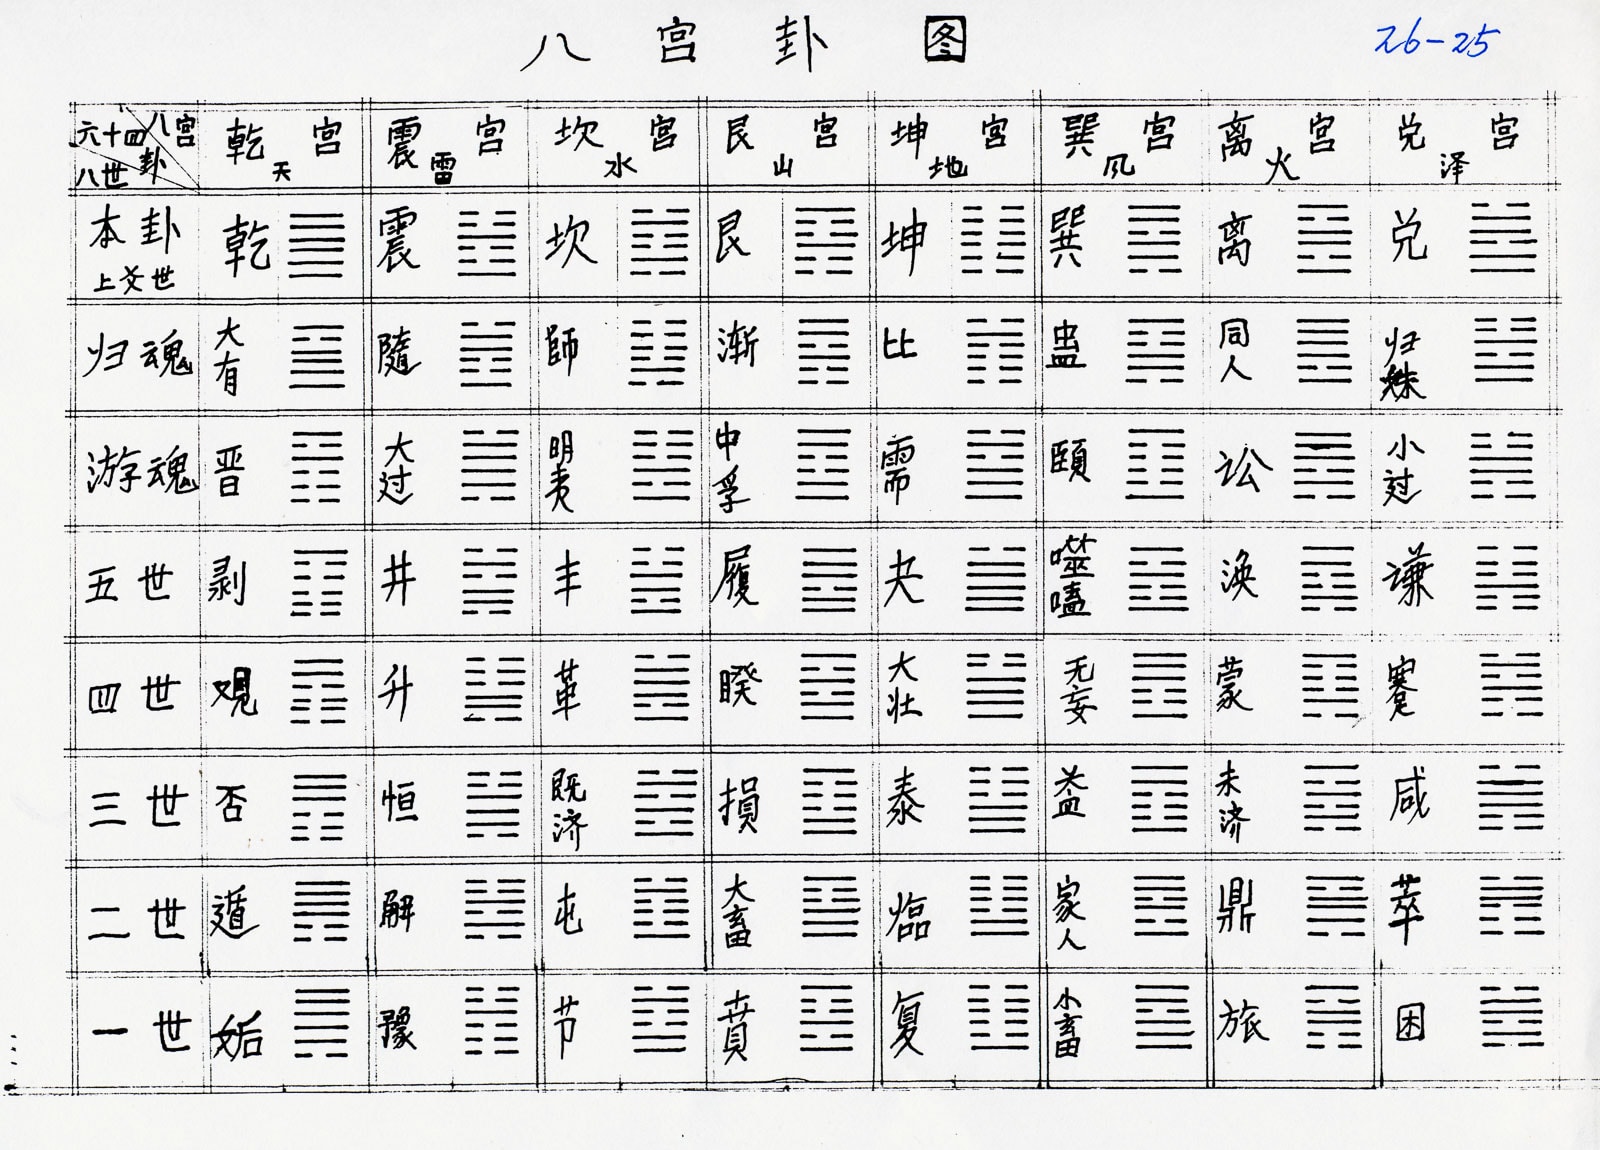 八宫卦图
26-25
六十四卦 八宫 八世
乾宫 天 震宫 雷 坎宫 水 艮宫 山 坤宫 地 巽宫 风 离宫 火 兑宫 泽
本卦 上爻世 乾 震 坎 艮 坤 巽 离 兑
归魂 大有 隨 師 渐 比 蛊 同人 归妹
游魂 晋 大过 明夷 中孚 需 頤 讼 小过
五世 剥 井 丰 履 夬 噬嗑 涣 谦
四世 观 升 革 睽 大壮 无妄 蒙 蹇
三世 否 恒 既济 損 泰 益 未济 咸
二世 遁 解 屯 大畜 临 家人 鼎 萃
一世 姤 豫 节 賁 复 小畜 旅 困